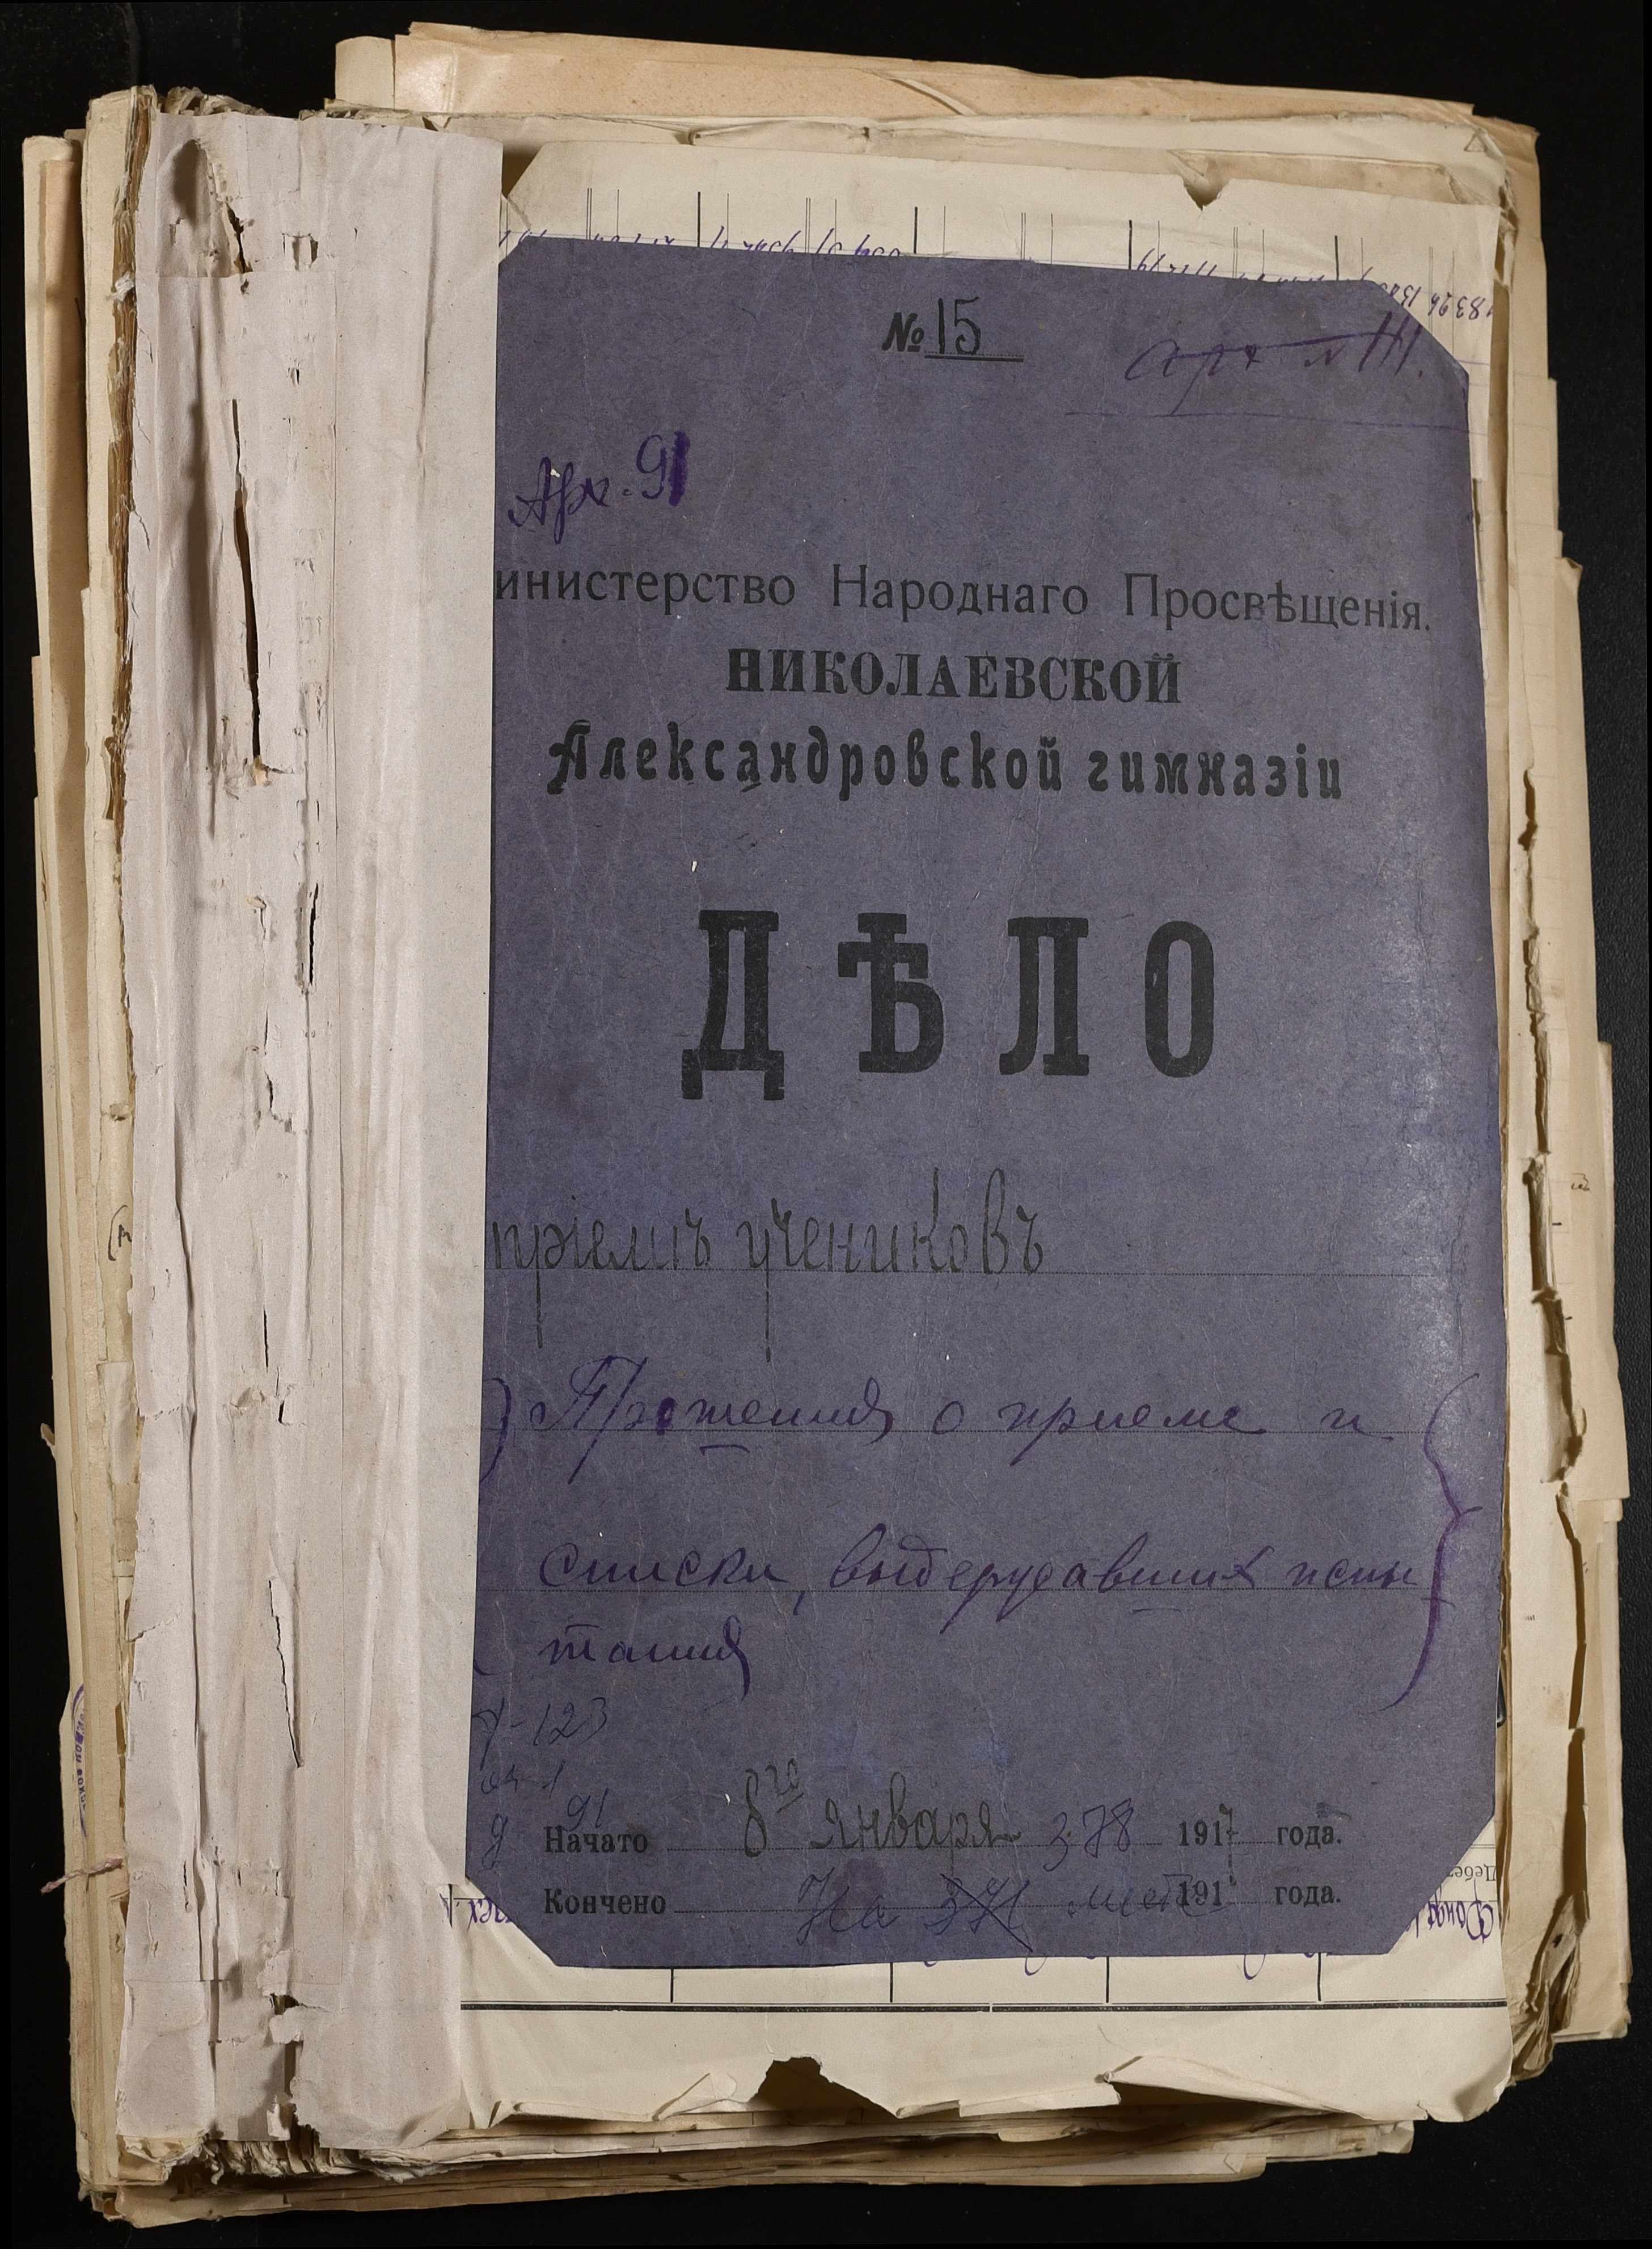 № 15
Арх. 91
инистерство Народнаго Просвѣщенія.
НИКОЛАЕВСКОЙ
Александровской гимназіи
ДѢЛО
пріемѣ учениковъ
Прошения о приеме и
списки, выдержавших испы
тания
123
91
Начато 8го января 378 1917 года.
Кончено На 191 года.